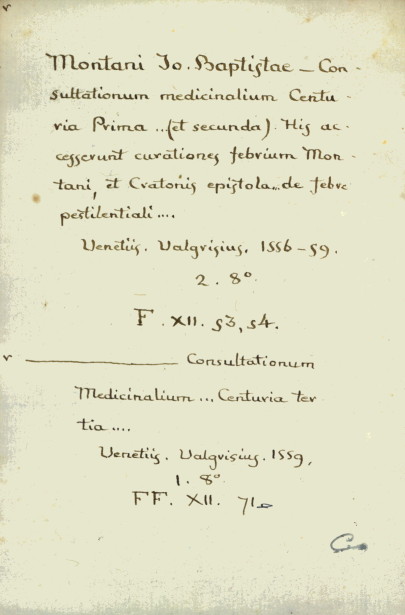 v
Montani Jo. Baptistae — Con-
sultationum medicinalium Centu-
ria Prima ... (et secunda). His ac-
cesserunt curationes febrium Mon-
tani, et Cratonis epistola... de febre
pestilentiali ....
Venetiis. Valgrisius. 1556-59.
2. 8º
F. XII. 53, 54.
v ———————— Consultationum
Medicinalium ... Centuria ter
tia ....
Venetiis. Valgrisius. 1559,
1. 8º
FF. XII. 71